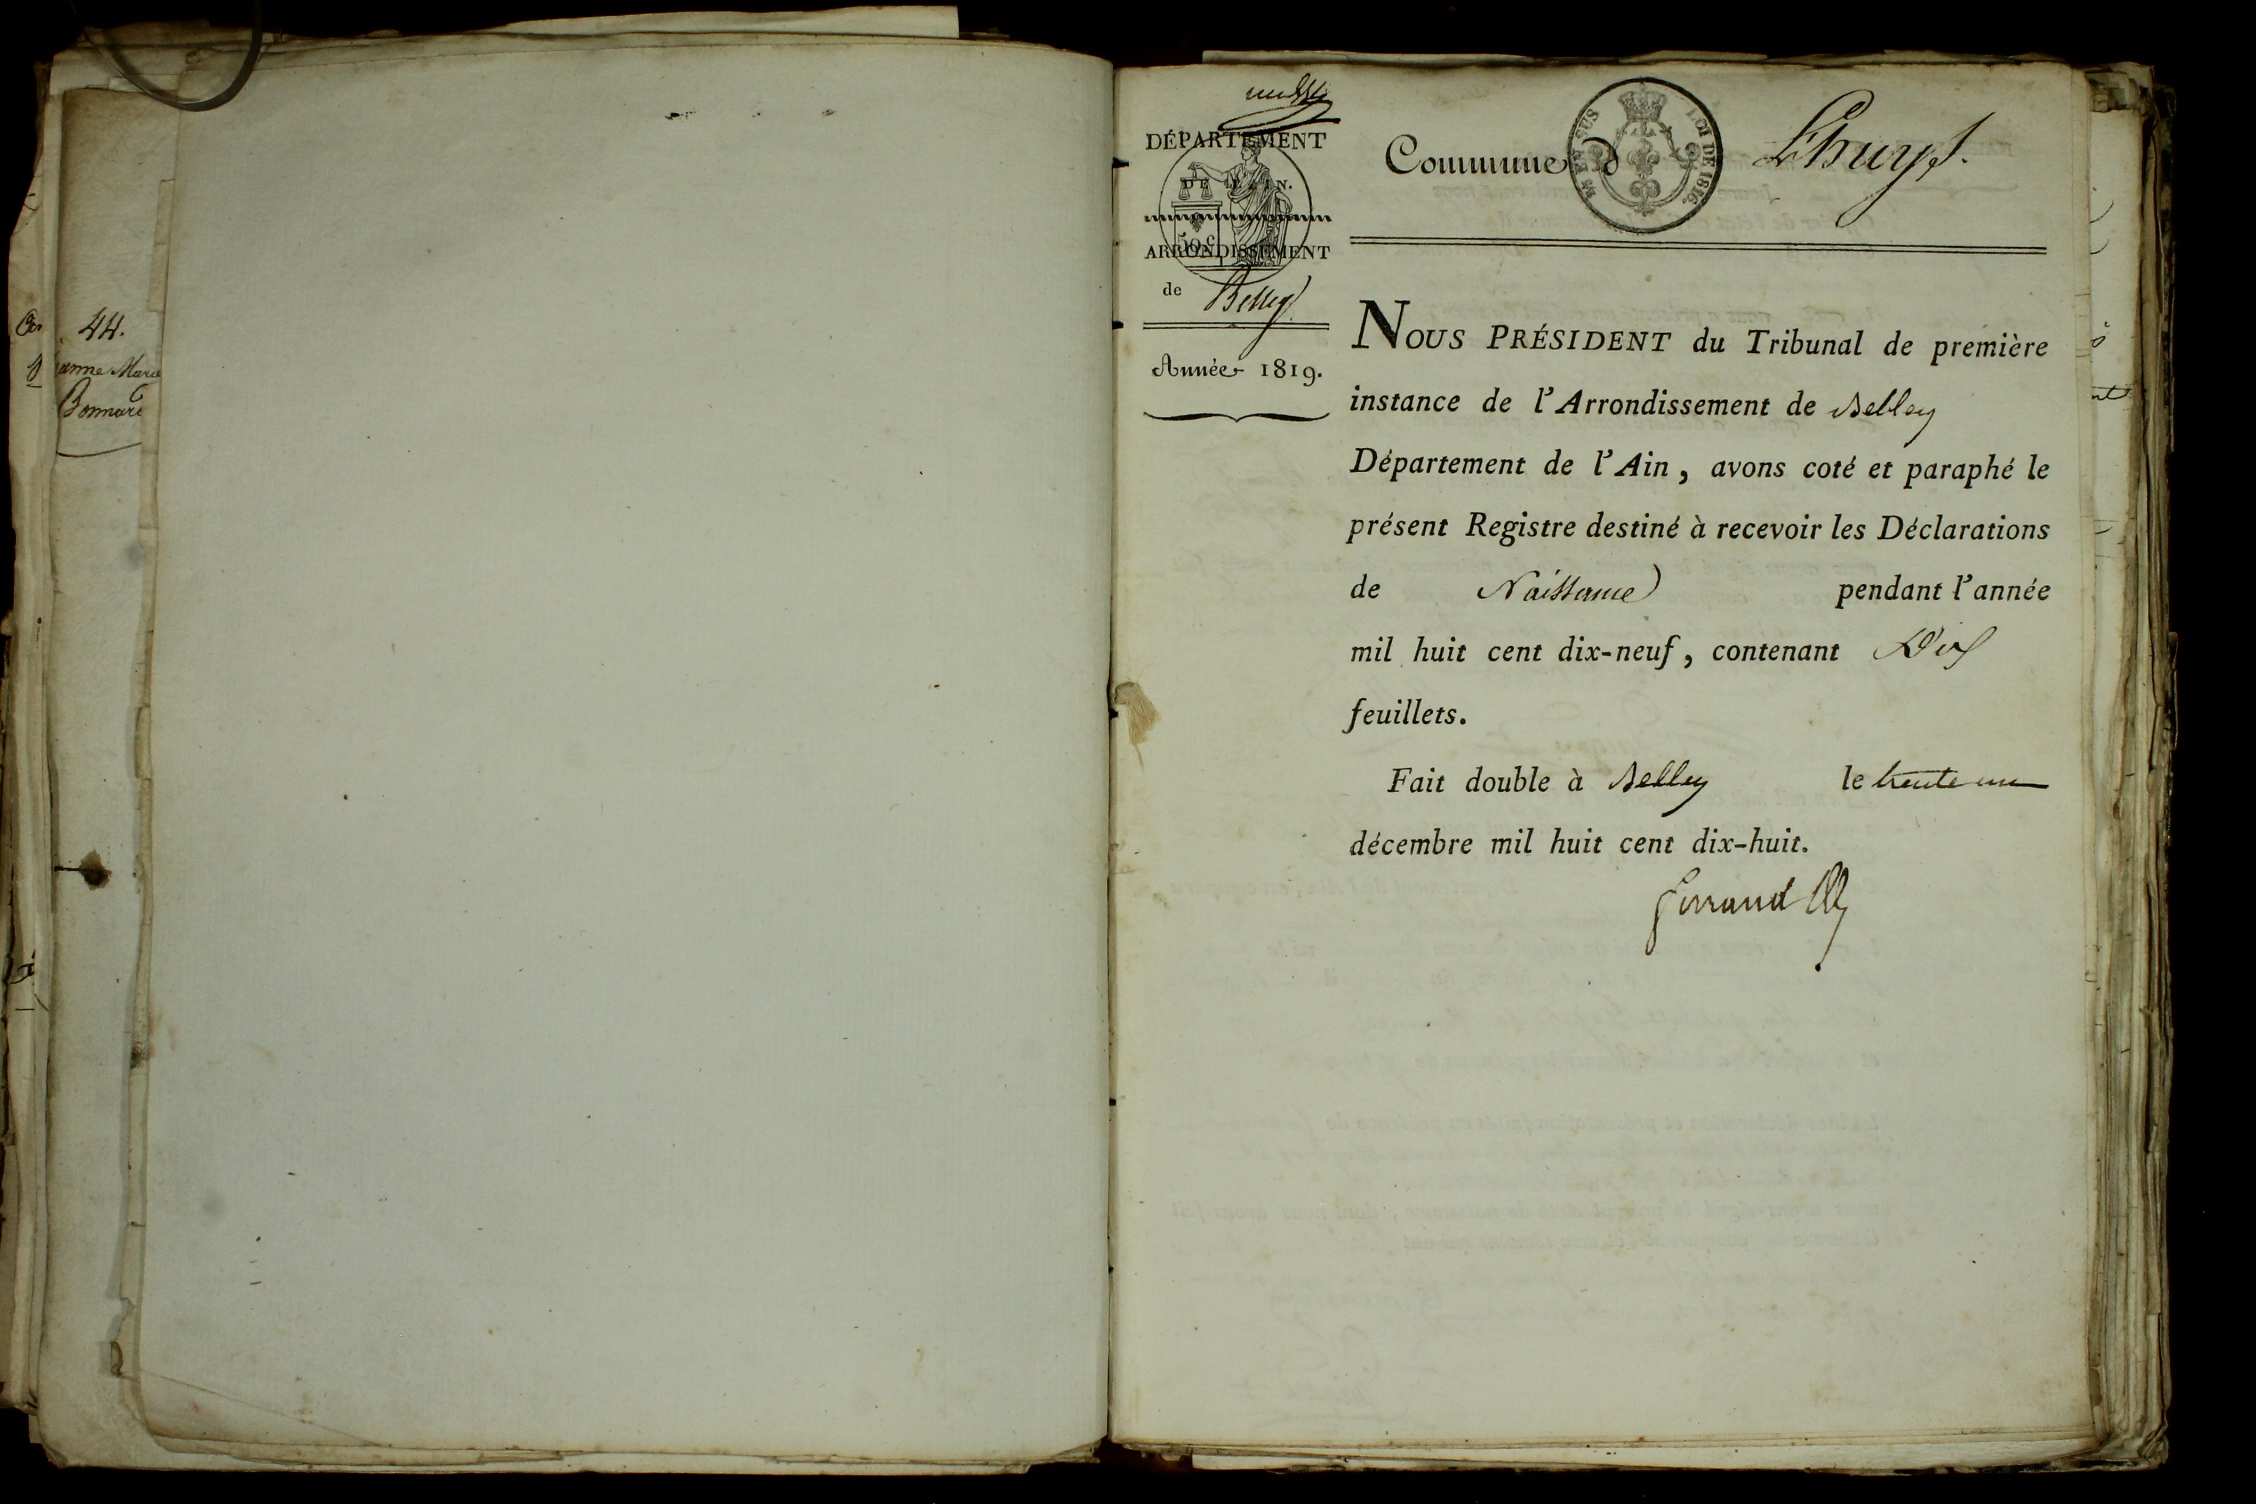 44.
Jeanne Marie
Bonnard
DÉPARTEMENT
DE L'AIN.
50 c
ARRONDISSEMENT
de Belley
Année 1819.
Commune d Lhuys.
EN SUS
LOI DE 1816.
NOUS PRÉSIDENT du Tribunal de première
instance de l'Arrondissement de Belley
Département de l'Ain, avons coté et paraphé le
présent Registre destiné à recevoir les Déclarations
de Naissance pendant l'année
mil huit cent dix-neuf, contenant Dix
feuillets.
Fait double à Belley le trente un
décembre mil huit cent dix-huit.